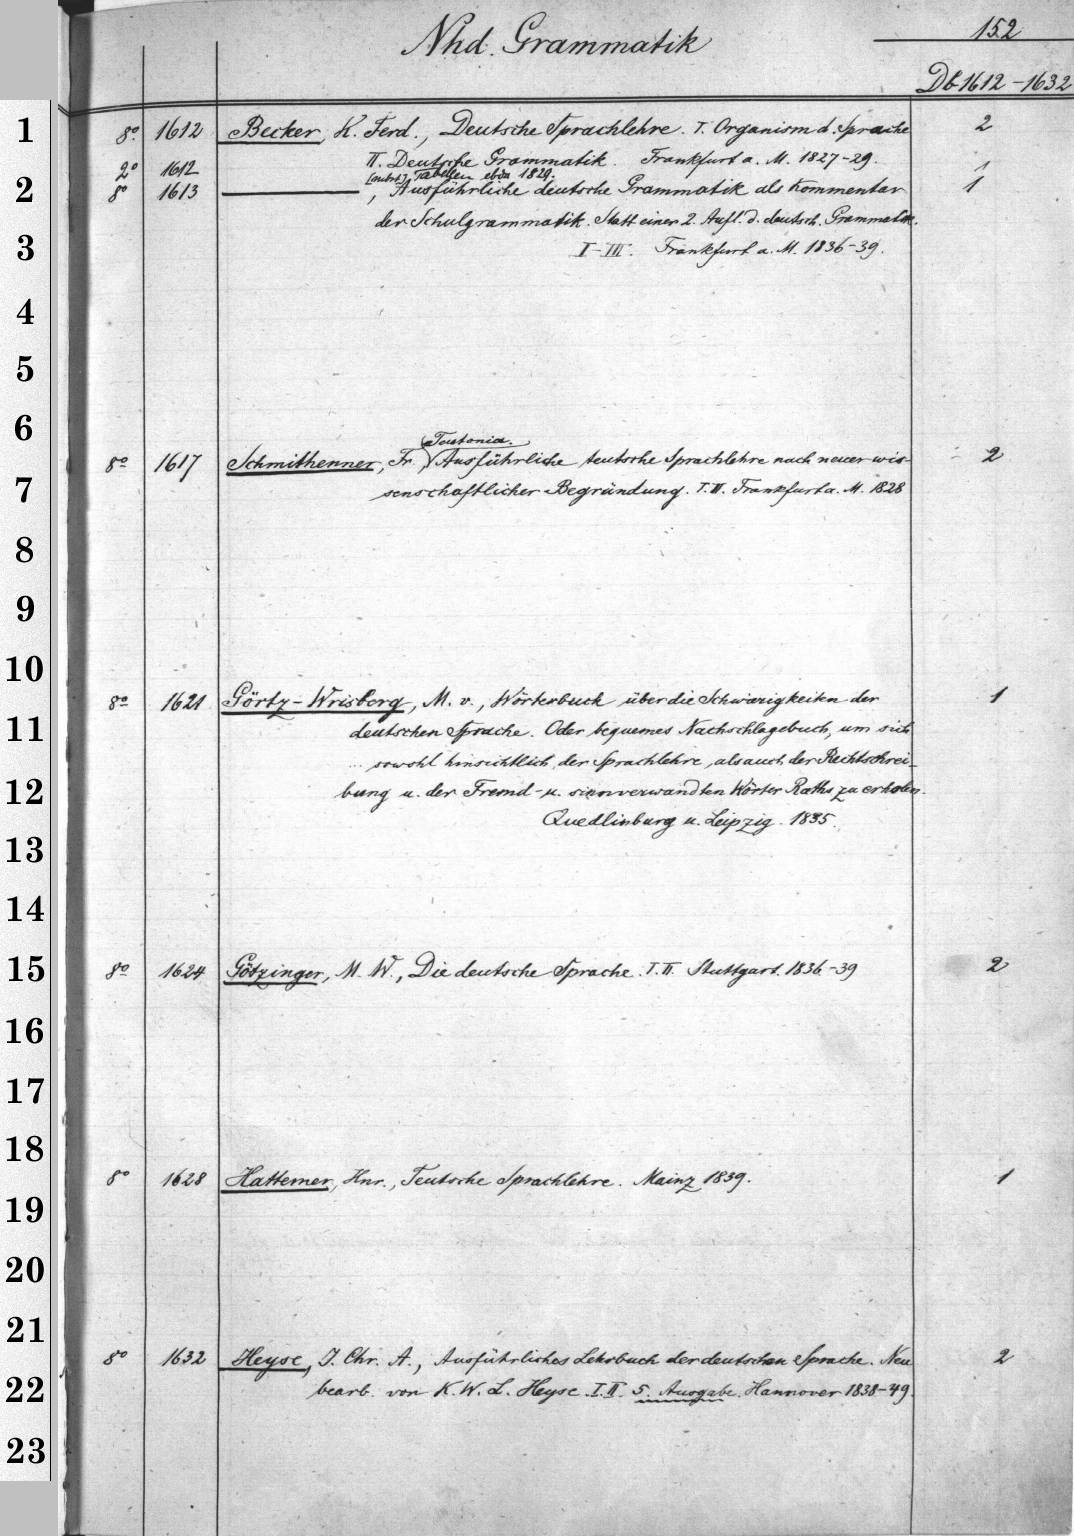 152
Nhd. Grammatik
Db 1612-1632
1
8º 1612 Becker, K. Ferd., Deutsche Sprachlehre. I. Organism d. Sprache 2
2º 1612 II. Deutsche Grammatik. Frankfurt a. M. 1827-29. 1
Tabellen ebda 1829.
2
8º 1613 ———, Ausführliche deutsche Grammatik als Kommentar 1
der Schulgrammatik. Statt einer 2. Aufl. d. deutsch. Grammatik.
3
I-III. Frankfurt a. M. 1836-39.
4
5
6
Teutonia.
8º 1617 Schmitthenner, Fr., Ausführliche teutsche Sprachlehre nach neuer wis- 2
7
senschaftlicher Begründung. I.II. Frankfurt a. M. 1828
8
9
10
8º 1621 Görtz-Wrisberg, M. v., Wörterbuch über die Schwierigkeiten der 1
11
deutschen Sprache. Oder bequemes Nachschlagebuch, um sich
... sowohl hinsichtlich der Sprachlehre, als auch der Rechtschrei-
12
bung u. der Fremd- u. sinnverwandten Wörter Raths zu erholen.
Quedlinburg u. Leipzig. 1835.
13
14
15
8º 1624 Götzinger, M. W., Die deutsche Sprache. I.II. Stuttgart. 1836-39 2
16
17
18
8º 1628 Hattemer, Hnr., Teutsche Sprachlehre. Mainz 1839. 1
19
20
21
8º 1632 Heyse, J. Chr. A., Ausführliches Lehrbuch der deutschen Sprache. Neu 2
22
bearb. von K. W. L. Heyse. I.II. 5. Ausgabe. Hannover 1838-49.
23